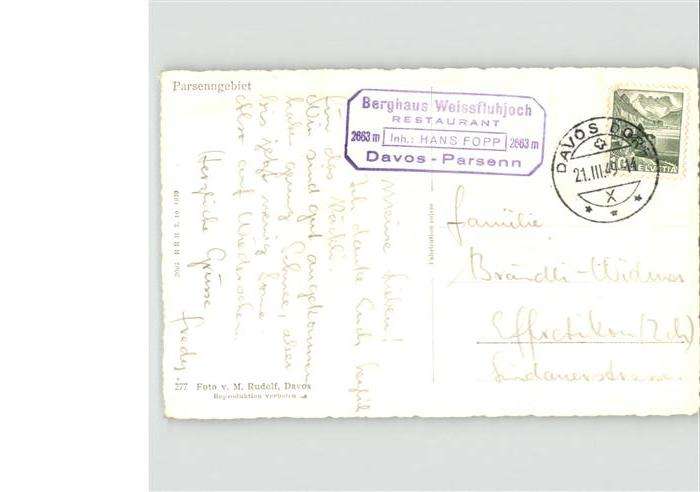 Parsenngebiet
Berghaus Weissfluhjoch
RESTAURANT
2663 m Inh.: HANS FOPP 2663 m
Davos - Parsenn
DAVOS DORF
21.III.49-14
X
HELVETIA
Meine Lieben!
Ich danke Euch herzlich
für das Päckli.
Wir sind gut angekommen
haben genug Schnee, aber
bis jetzt wenig Sonne.
Also auf Wiedersehen.
Herzliche Grüsse
Fredy.
Familie
Brändli-Widmer
Effretikon/Zch
Lindauerstrasse
277 Foto v. M. Rudolf, Davos
Reproduktion verboten